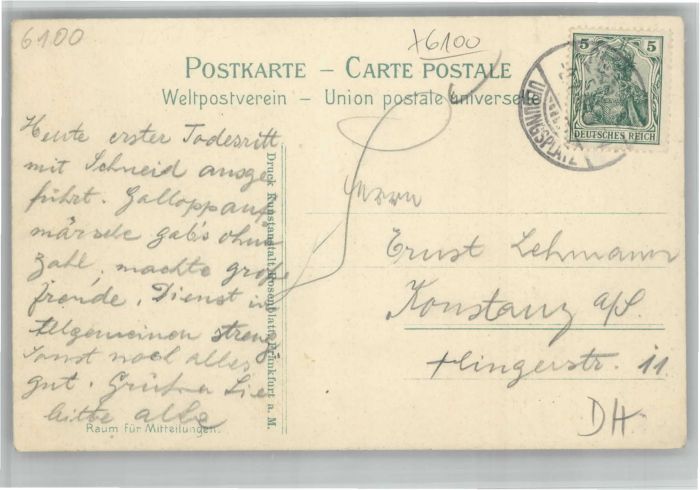 6100
x6100
POSTKARTE – CARTE POSTALE
Weltpostverein – Union postale universelle
5 5
DEUTSCHES REICH
ÜBUNGSPLATZ
Heute erster Todesritt
mit Schneid ausge
führt. Galloppauf
märsche gab's ohne
Zahl, machte große
freude. Dienst im
Allgemeinen streng
Sonst noch alles
gut. Grüßen Sie
bitte alle
Raum für Mitteilungen.
Druck Kunstanstalt Rosenblatt, Frankfurt a. M.
Herrn
Ernst Lehmann
Konstanz a/S.
11
DH